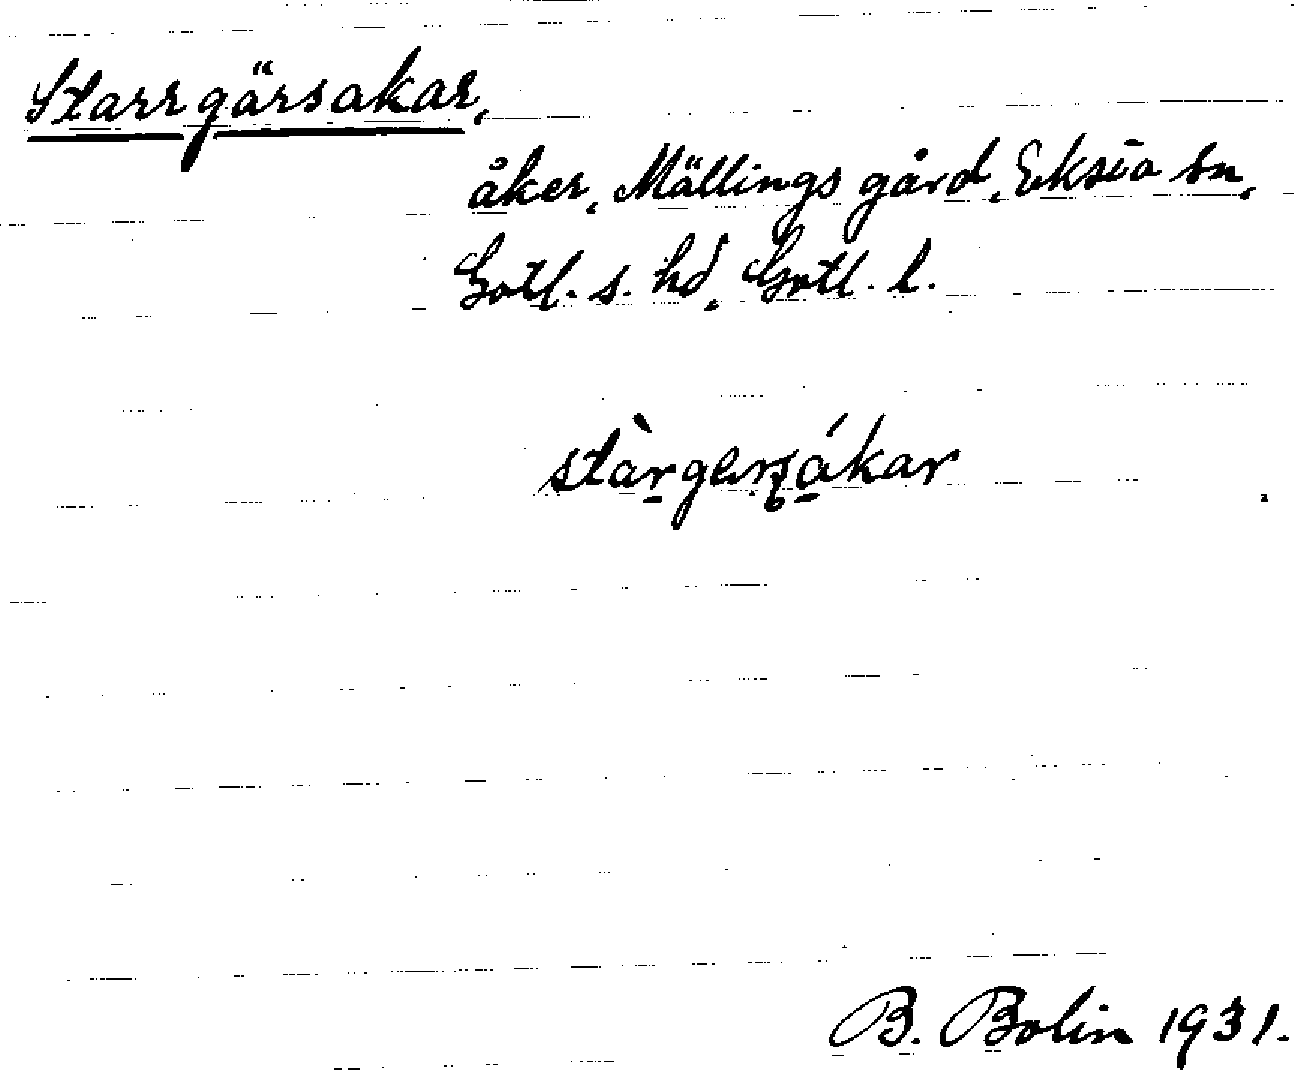 Starrgärsakar,
åker, Mällings gård, Eksta sn,
Gotl. s. hd, Gotl. l.
B. Bolin 1931.